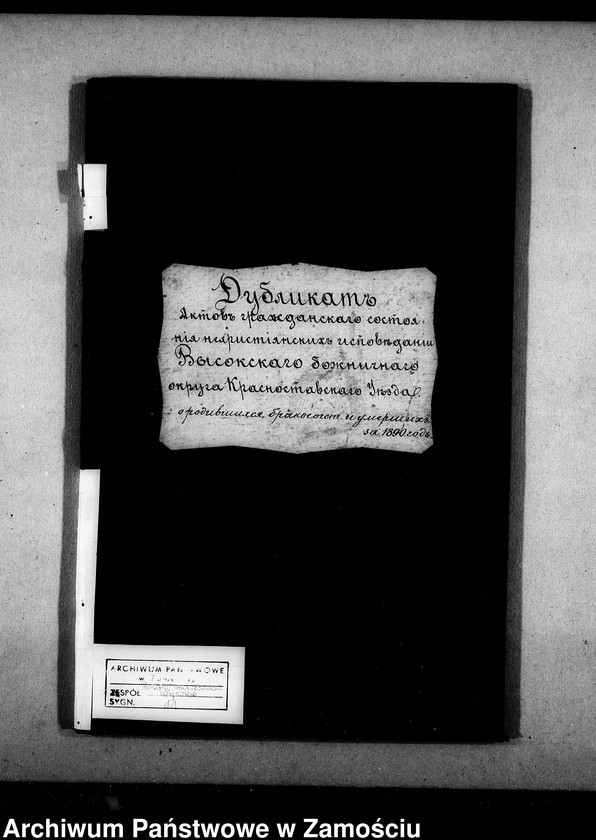 Дубликатъ
Актовъ гражданскаго состоя-
нія нехристіянскихъ исповѣданій
Высокскаго божничнаго
округа Красноставскаго Уѣзда,
о родившихся, бракосочет. и умершихъ
за 1890 годъ.
ARCHIWUM PAŃSTWOWE
w
ZESPÓŁ
SYGN.
Archiwum Państwowe w Zamościu